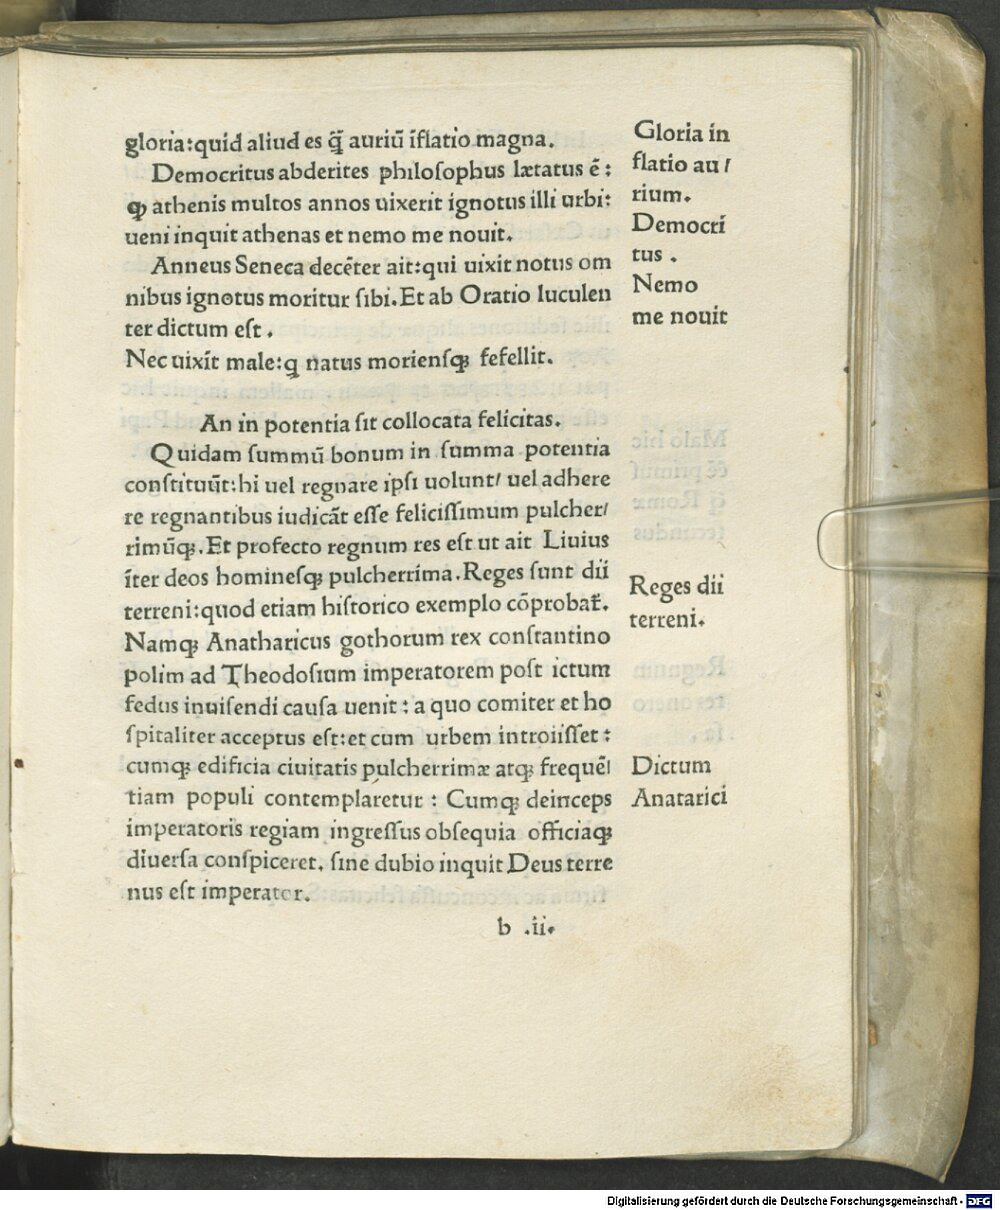 gloria:quid aliud es q̃ auriū īflatio magna.
Democritus abderites philoſophus lætatus ē:
ꝙ athenis multos annos uixerit ignotus illi urbi:
ueni inquit athenas et nemo me nouit.
Anneus Seneca decēter ait:qui uixit notus om
nibus ignotus moritur ſibi.Et ab Oratio luculen
ter dictum eſt.
Nec uixit male:q natus morienſqꝫ fefellit.
An in potentia ſit collocata felicitas.
Quidam ſummū bonum in ſumma potentia
conſtituūt:hi uel regnare ipſi uolunt/ uel adhere
re regnantibus iudicāt eſſe feliciſſimum pulcher/
rimūqꝫ.Et profecto regnum res eſt ut ait Liuius
īter deos homineſqꝫ pulcherrima.Reges ſunt dii
terreni:quod etiam hiſtorico exemplo cōprobat̄.
Namqꝫ Anatharicus gothorum rex conſtantino
polim ad Theodoſium imperatorem poſt ictum
fedus inuiſendi cauſa uenit: a quo comiter et ho
ſpitaliter acceptus eſt:et cum urbem introiiſſet:
cumqꝫ edificia ciuitatis pulcherrimæ atqꝫ frequē/
tiam populi contemplaretur: Cumqꝫ deinceps
imperatoris regiam ingreſſus obſequia officiaqꝫ
diuerſa conſpiceret. ſine dubio inquit Deus terre
nus eſt imperator.
b .ii.
Gloria in
flatio au/
rium.
Democri
tus.
Nemo
me nouit
Reges dii
terreni.
Dictum
Anatarici
Digitalisierung gefördert durch die Deutsche Forschungsgemeinschaft - DFG